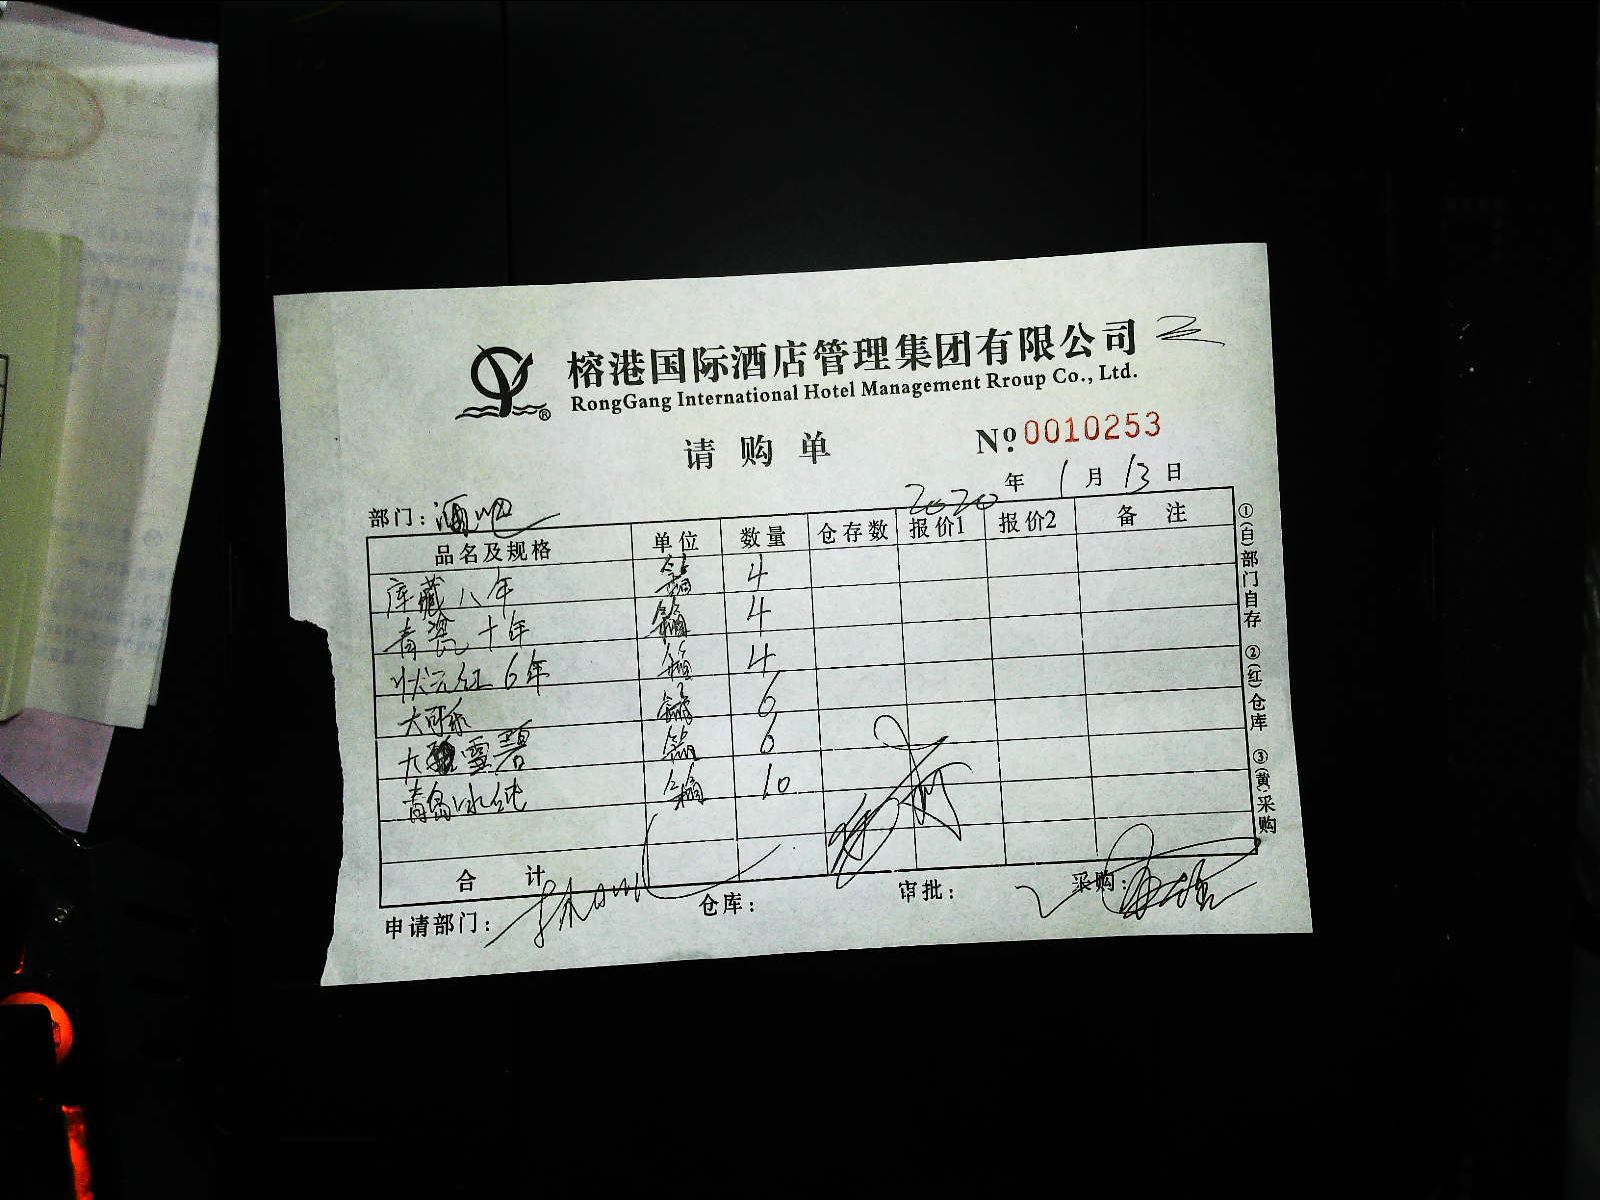 榕港国际酒店管理集团有限公司
RongGang International Hotel Management Rroup Co., Ltd.
请购单 Nº.0010253
2020年1月13日
部门：酒吧
品名及规格 单位 数量 仓存数 报价1 报价2 备注
库藏八年 箱 4
青瓷十年 箱 4
状元红6年 箱 4
大可乐 箱 6
大雪碧 箱 6
青岛冰纯 箱 10
合计
申请部门： 仓库： 审批： 采购：
①(白)部门自存 ②(红)仓库 ③(黄)采购